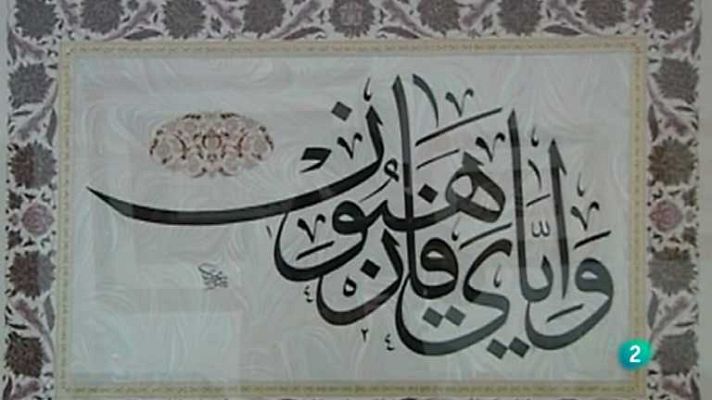 وَاِيَّايَ فَارْهَبُونِ
2